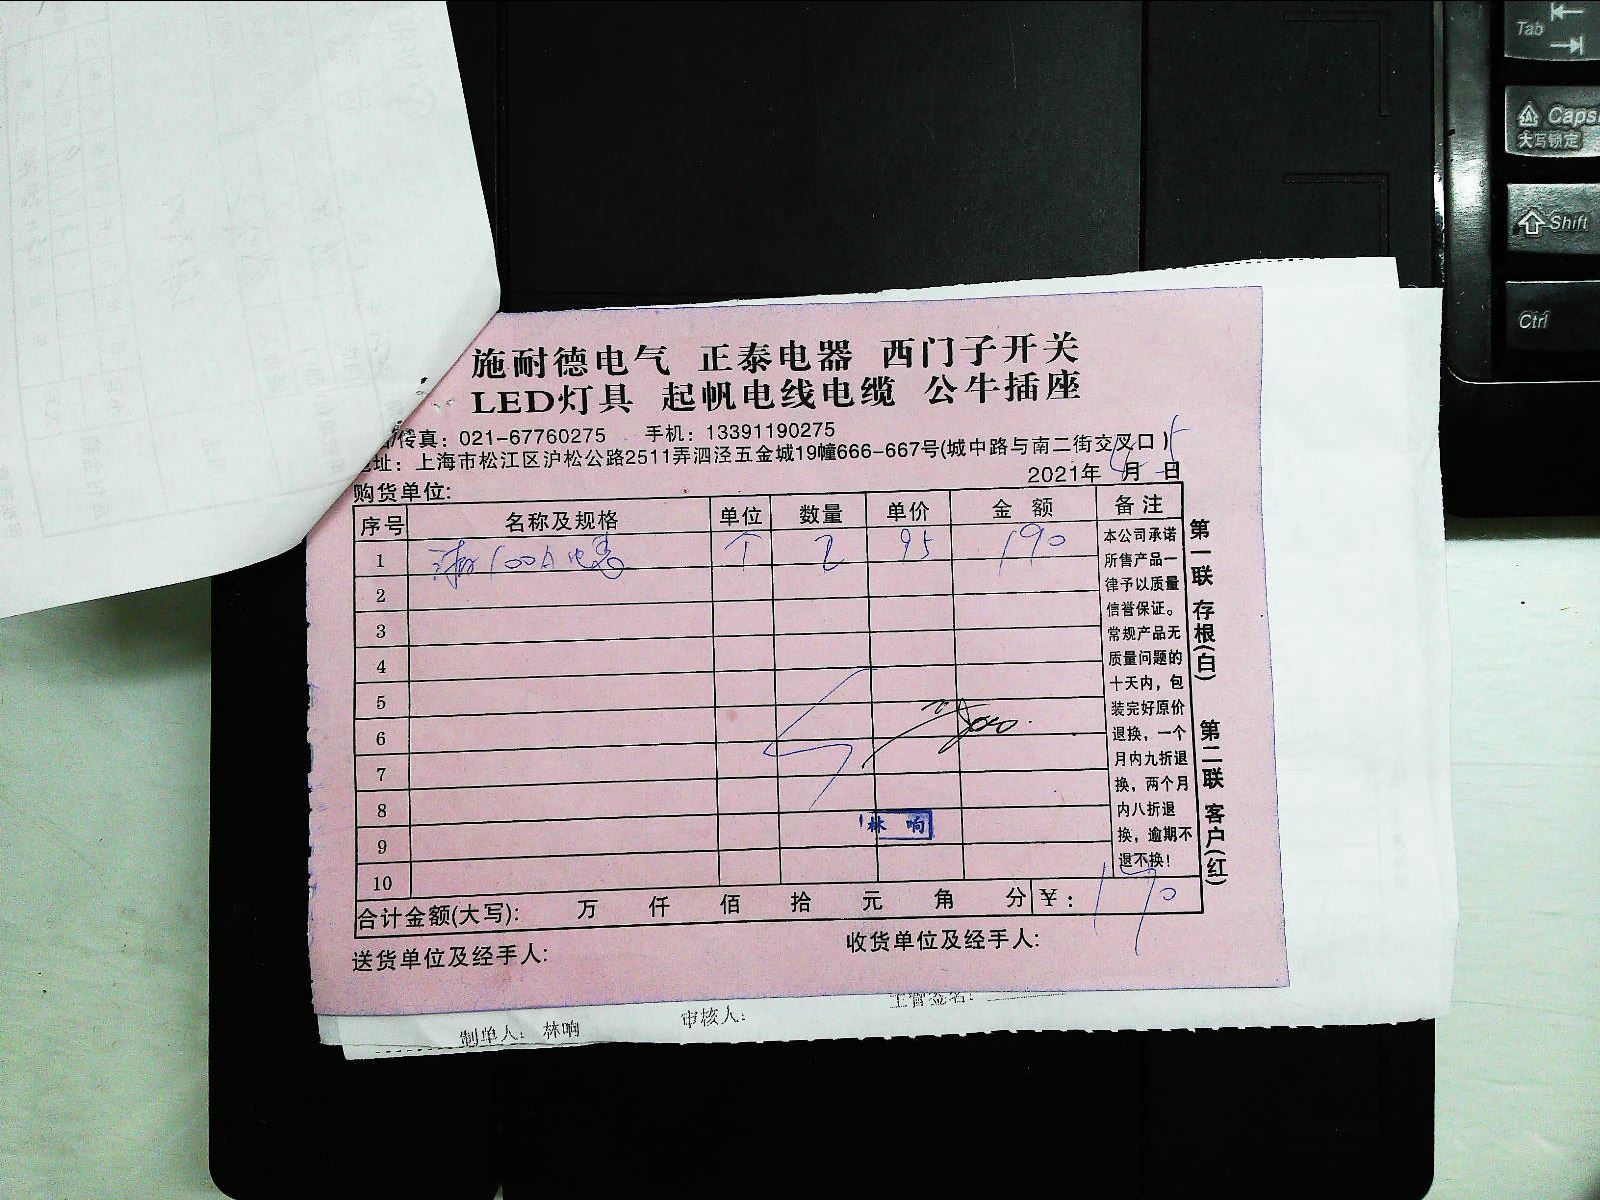 施耐德电气 正泰电器 西门子开关
LED灯具 起帆电线电缆 公牛插座
传真：021-67760275 手机：13391190275
址：上海市松江区沪松公路2511弄泗泾五金城19幢666-667号(城中路与南二街交叉口)
2021年 月 5日
购货单位:
序号 名称及规格 单位 数量 单价 金 额 备 注
1 100A电表 个 2 95 190
2
3
4
5
6
7
8
9
10
本公司承诺
所售产品一
律予以质量
信誉保证。
常规产品无
质量问题的
十天内，包
装完好原价
退换，一个
月内九折退
换，两个月
内八折退
换，逾期不
退不换！
第一联 存根(白) 第二联 客户(红)
林 响
合计金额(大写): 万 仟 佰 拾 元 角 分 ¥：190
送货单位及经手人: 收货单位及经手人:
制单人： 林响 审核人: 主管签名:
Tab
Caps
大写锁定
Shift
Ctrl